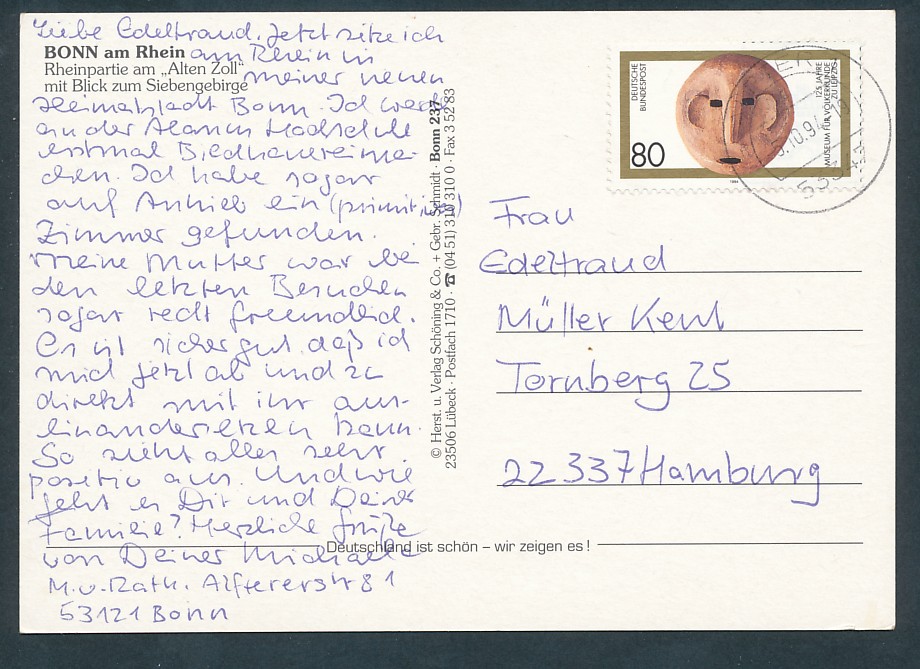 Liebe Edeltraud. Jetzt sitze ich
am Rhein in
meiner neuen
Heimatstadt Bonn. Ich werde
an der Alanus Hochschule
erstmal Bildhauerei ma-
chen. Ich habe sogar
auf Anhieb ein (primitives)
Zimmer gefunden.
Meine Mutter war bei
den letzten Besuchen
sogar recht freundlich.
Es ist sicher gut, daß ich
mich jetzt ab und zu
direkt mit ihr aus-
einandersetzen kann.
So sieht alles sehr
positiv aus. Und wie
geht es Dir und Deiner
Familie? Herzliche Grüße
von Deiner Michaela
M.v.Rath. Alfterer str 81
53121 Bonn
BONN am Rhein
Rheinpartie am „Alten Zoll"
mit Blick zum Siebengebirge
© Herst. u. Verlag Schöning & Co. + Gebr. Schmidt · Bonn 237
23506 Lübeck · Postfach 1710 · ☎ (04 51) 310 310 0 · Fax 3 52 83
DEUTSCHE
BUNDESPOST
80
125 JAHRE
MUSEUM FÜR VÖLKERKUNDE
ZU LEIPZIG
1994
Frau
Edeltraud
Müller Kent
Tornberg 25
22337 Hamburg
Deutschland ist schön – wir zeigen es !